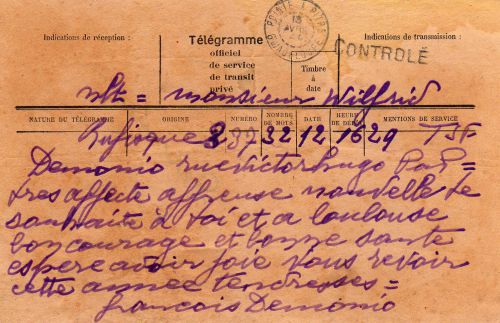 Indications de réception :
Télégramme
officiel
de service
de transit
privé
Timbre
à
date
POINTE A PITRE
18
AVRIL
Indications de transmission :
CONTROLÉ
nlt = monsieur Wilfrid
NATURE DU TÉLÉGRAMME ORIGINE NUMÉRO NOMBRE DE MOTS DATE HEURE DE DÉPÔT MENTIONS DE SERVICE
Rufisque 237 32 12 1629 TSF
Demonio rue victorhugo PaP =
tres affecte affreuse nouvelle te
souhaite a toi et a loulouse
bon courage et bonne sante
espere avoir joie vous revoir
cette annee tendresses =
francois Demonio